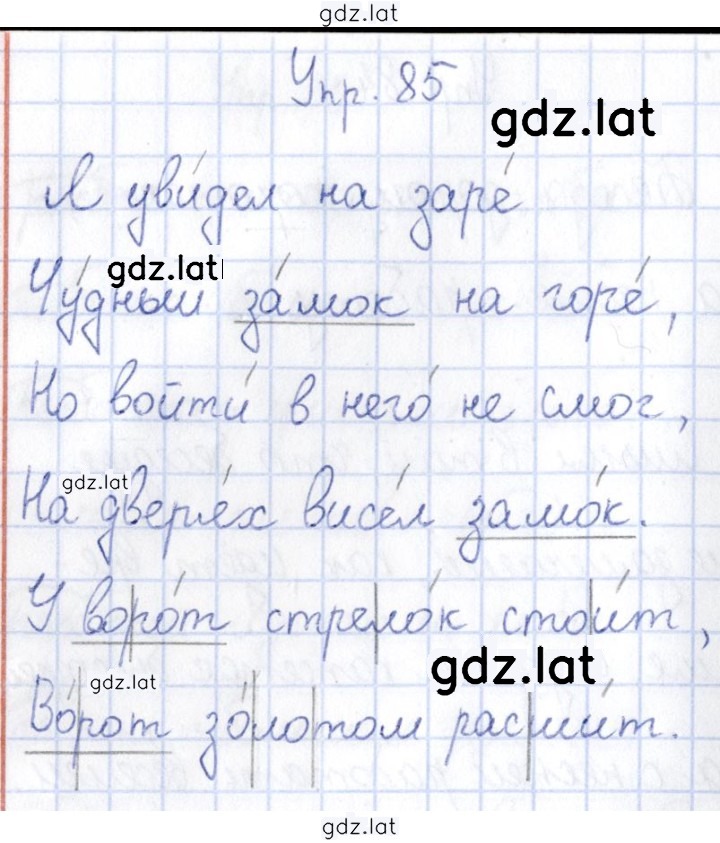 gdz.lat
Упр. 85
gdz.lat
Я уви́дел на заре́
gdz.lat
Чу́дный за́мок на горе́,
Но войти́ в него́ не смог,
gdz.lat
На дверя́х висе́л замо́к.
У во|ро́т стре|ло́к сто|и́т,
gdz.lat
gdz.lat
Во́|рот зо́|ло|том рас|ши́т.
gdz.lat